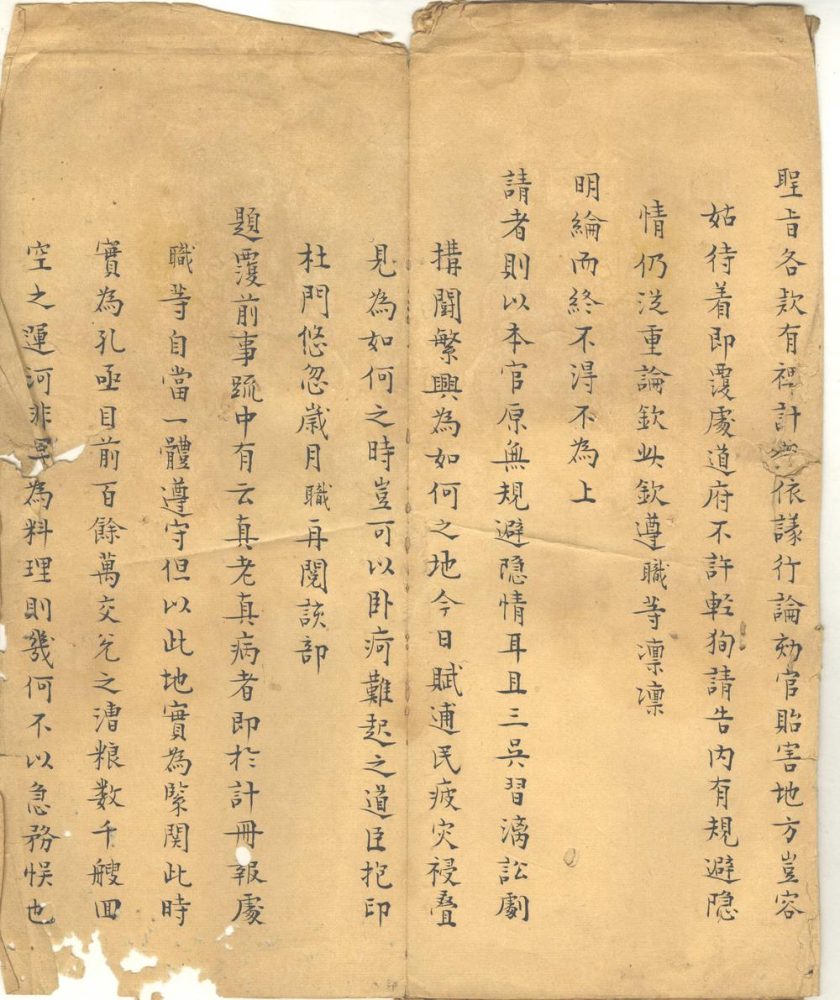 聖旨各款有裨計典依議行論劾官貽害地方豈容
姑待着即覆處道府不許輕狥請告内有規避隐
情仍従重論欽此欽遵職等凛凛
明綸而終不得不為上
請者則以本官原無規避隐情耳且三吳習漓訟劇
搆鬪繁興為如何之地今日賦逋民疲灾祲疊
見為如何之時豈可以卧疴難起之道臣抱印
杜門悠忽歲月職再閱該部
題覆前事疏中有云真老真病者即於計冊報處
職等自當一體遵守但以此地實為緊関此時
實為孔亟目前百餘萬交兊之漕粮数千艘囬
空之運河非早為料理則幾何不以急務悞也